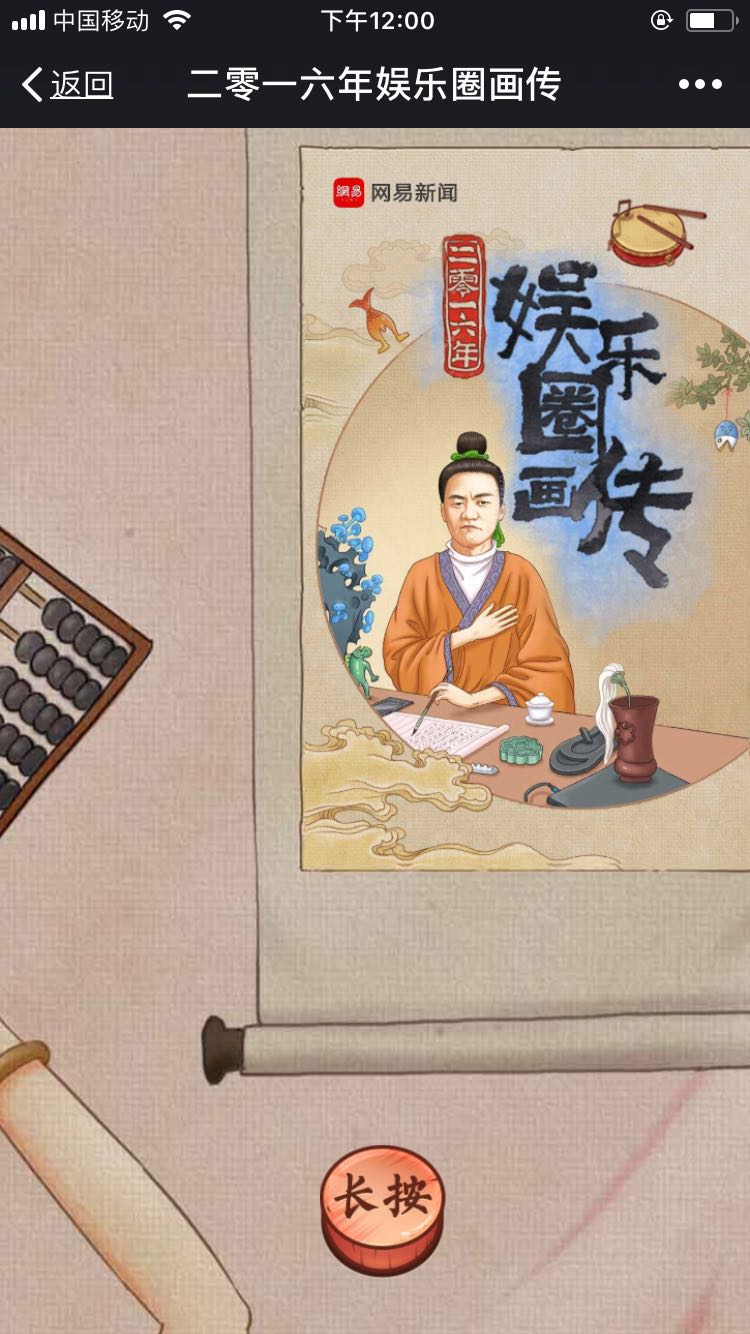 中国移动
下午12:00
返回
二零一六年娱乐圈画传
網易
网易新闻
二零一六年
娱乐圈画传
长按